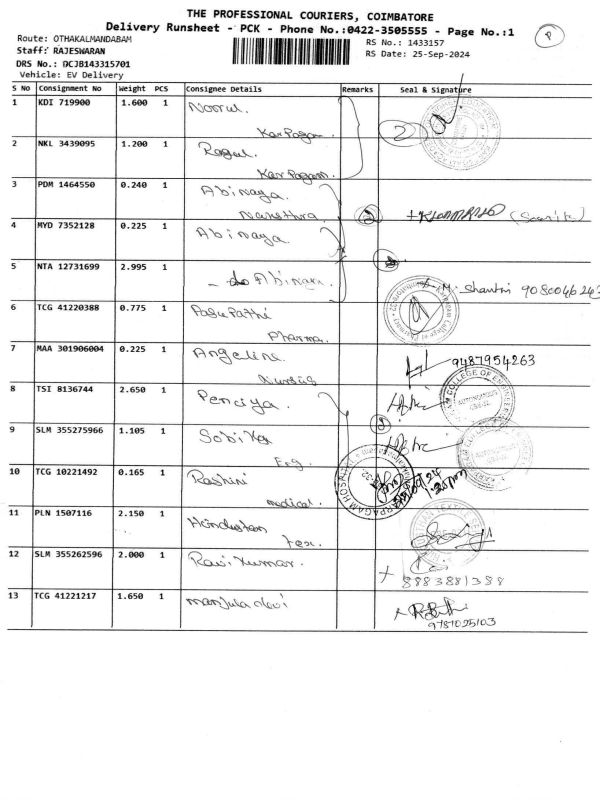 THE PROFESSIONAL COURIERS, COIMBATORE
Delivery Runsheet - PCK - Phone No.:0422-3505555 - Page No.:1
Route: OTHAKALMANDABAM
RS No.: 1433157
Staff: RAJESWARAN
RS Date: 25-Sep-2024
DRS No.: DCJB143315701
Vehicle: EV Delivery
S No Consignment No Weight PCS Consignee Details Remarks Seal & Signature
1 KDI 719900 1.600 1 Noorul.
Karpagam.
2 NKL 3439095 1.200 1 Ragul.
Karpagam
3 PDM 1464550 0.240 1 Abinaya
4 MYD 7352128 0.225 1 Abinaya
5 NTA 12731699 2.995 1
M. Shanthi
6 TCG 41220388 0.775 1 Pasupathi
Pharma.
7 MAA 301906004 0.225 1 Angeline
9487954263
8 TSI 8136744 2.650 1
9 SLM 355275966 1.105 1 Sobika
Eng.
10 TCG 10221492 0.165 1 Rashini
medical.
11 PLN 1507116 2.150 1 Hindustan
Tex.
12 SLM 355262596 2.000 1 Ravi Kumar.
8883881388
13 TCG 41221217 1.650 1 Manjula devi